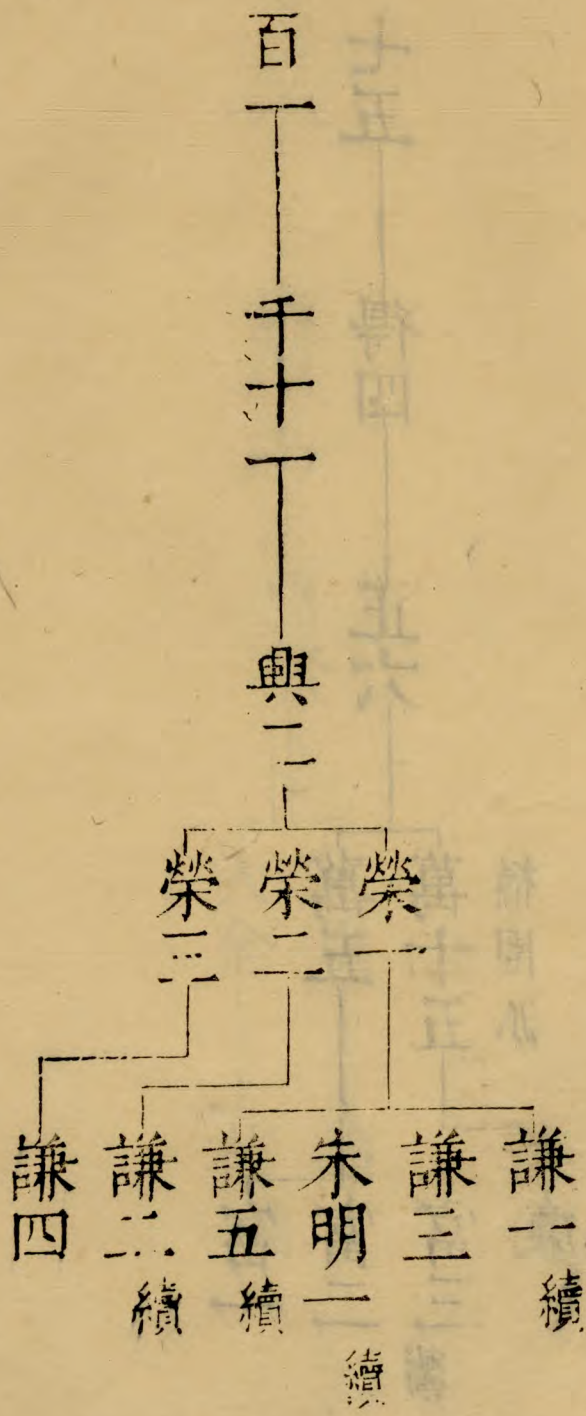 百一
千十一
興二
榮一
榮二
榮三
謙一 續
謙三
未明一 續
謙五 續
謙二 續
謙四